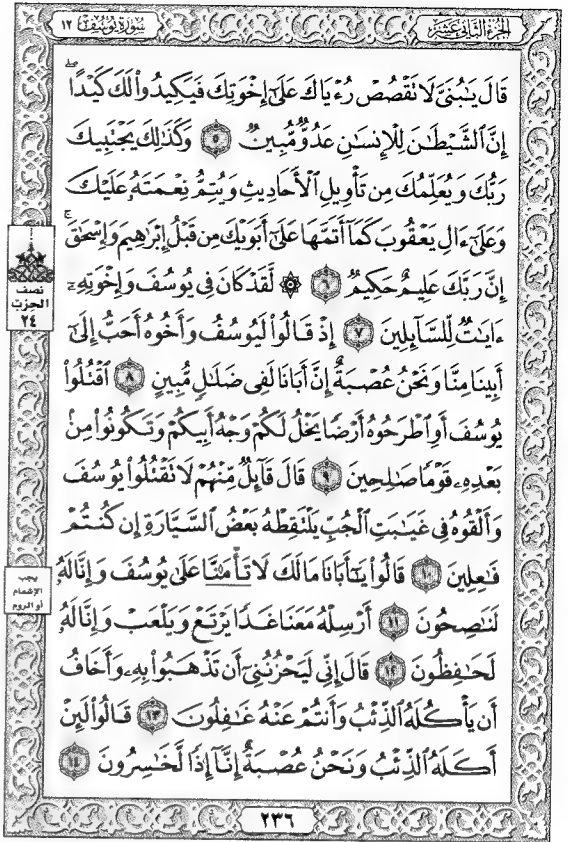 الجزء الثاني عشر
سورة يوسف ١٢
قَالَ يَٰبُنَىَّ لَا تَقْصُصْ رُءْيَاكَ عَلَىٰٓ إِخْوَتِكَ فَيَكِيدُوا۟ لَكَ كَيْدًا ۖ
إِنَّ ٱلشَّيْطَٰنَ لِلْإِنسَٰنِ عَدُوٌّ مُّبِينٌ ٥ وَكَذَٰلِكَ يَجْتَبِيكَ
رَبُّكَ وَيُعَلِّمُكَ مِن تَأْوِيلِ ٱلْأَحَادِيثِ وَيُتِمُّ نِعْمَتَهُۥ عَلَيْكَ
وَعَلَىٰٓ ءَالِ يَعْقُوبَ كَمَآ أَتَمَّهَا عَلَىٰٓ أَبَوَيْكَ مِن قَبْلُ إِبْرَٰهِيمَ وَإِسْحَٰقَ ۚ
إِنَّ رَبَّكَ عَلِيمٌ حَكِيمٌ ٦ ۞ لَّقَدْ كَانَ فِى يُوسُفَ وَإِخْوَتِهِۦٓ
ءَايَٰتٌ لِّلسَّآئِلِينَ ٧ إِذْ قَالُوا۟ لَيُوسُفُ وَأَخُوهُ أَحَبُّ إِلَىٰٓ
أَبِينَا مِنَّا وَنَحْنُ عُصْبَةٌ إِنَّ أَبَانَا لَفِى ضَلَٰلٍ مُّبِينٍ ٨ ٱقْتُلُوا۟
يُوسُفَ أَوِ ٱطْرَحُوهُ أَرْضًا يَخْلُ لَكُمْ وَجْهُ أَبِيكُمْ وَتَكُونُوا۟ مِنۢ
بَعْدِهِۦ قَوْمًا صَٰلِحِينَ ٩ قَالَ قَآئِلٌ مِّنْهُمْ لَا تَقْتُلُوا۟ يُوسُفَ
وَأَلْقُوهُ فِى غَيَٰبَتِ ٱلْجُبِّ يَلْتَقِطْهُ بَعْضُ ٱلسَّيَّارَةِ إِن كُنتُمْ
فَٰعِلِينَ ١٠ قَالُوا۟ يَٰٓأَبَانَا مَالَكَ لَا تَأْمَ۫نَّا عَلَىٰ يُوسُفَ وَإِنَّا لَهُۥ
لَنَٰصِحُونَ ١١ أَرْسِلْهُ مَعَنَا غَدًا يَرْتَعْ وَيَلْعَبْ وَإِنَّا لَهُۥ
لَحَٰفِظُونَ ١٢ قَالَ إِنِّى لَيَحْزُنُنِىٓ أَن تَذْهَبُوا۟ بِهِۦ وَأَخَافُ
أَن يَأْكُلَهُ ٱلذِّئْبُ وَأَنتُمْ عَنْهُ غَٰفِلُونَ ١٣ قَالُوا۟ لَئِنْ
أَكَلَهُ ٱلذِّئْبُ وَنَحْنُ عُصْبَةٌ إِنَّآ إِذًا لَّخَٰسِرُونَ ١٤
نصف
الحزب
٢٤
يجب
الإشمام
أو الروم
٢٣٦